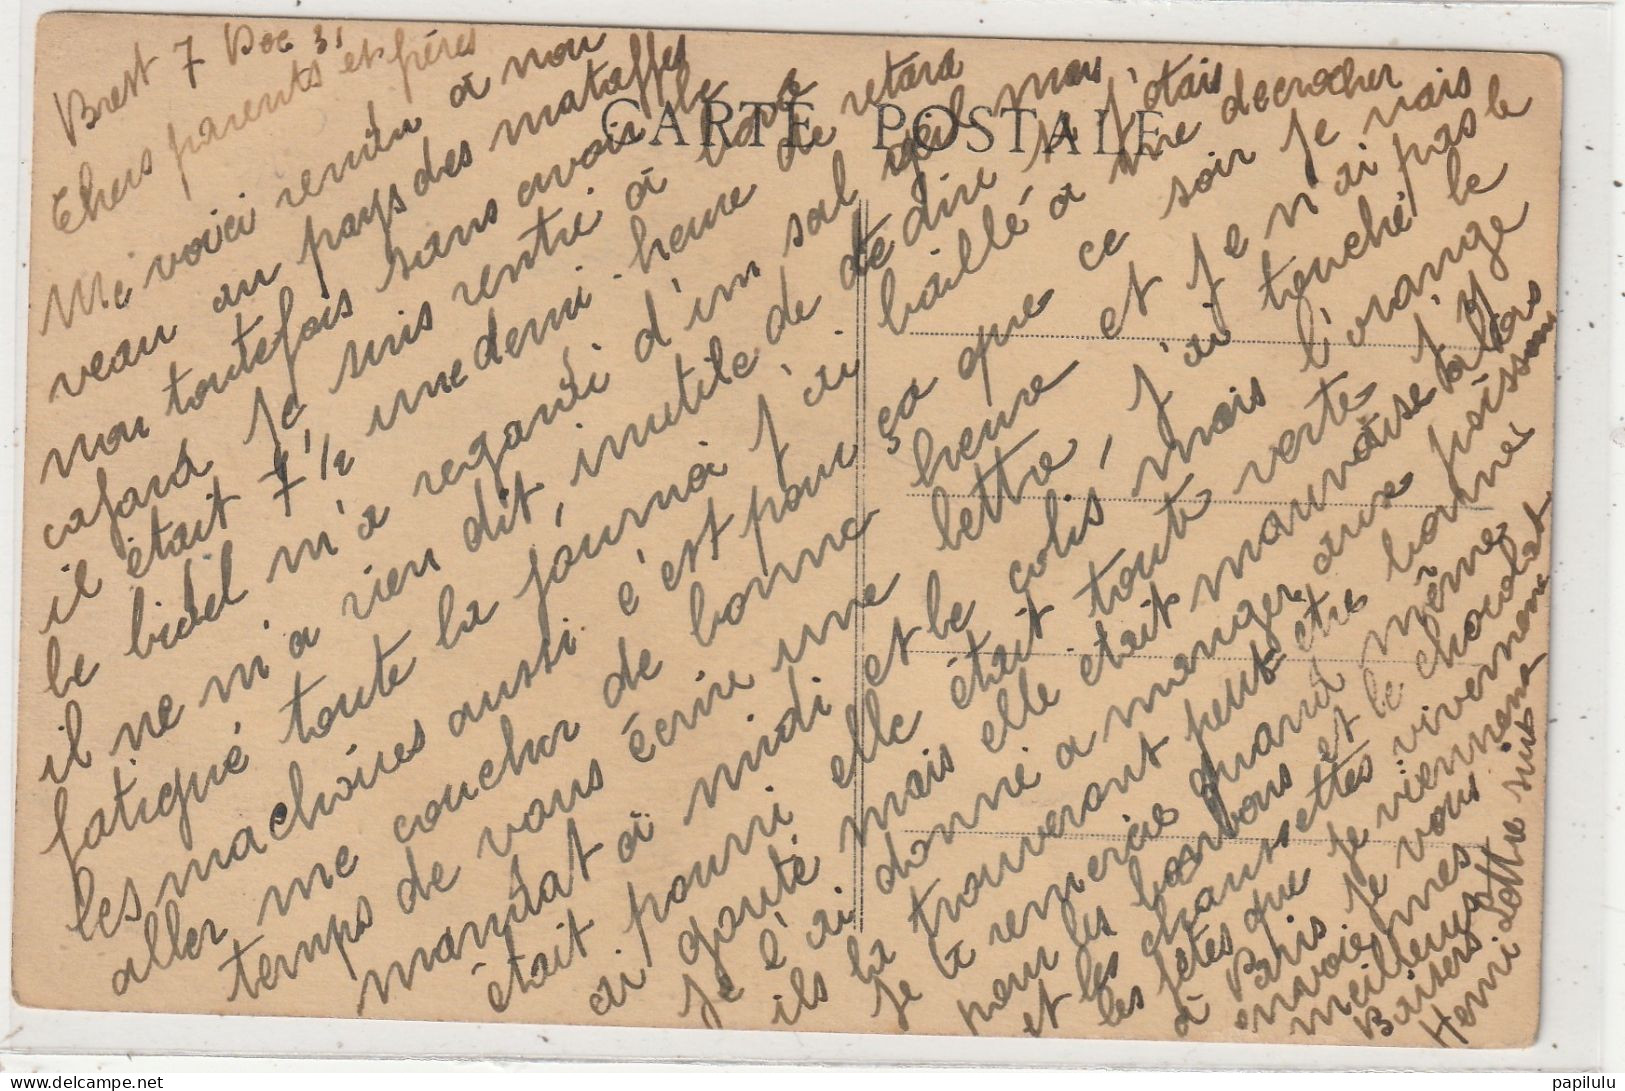 CARTE POSTALE
Brest 7 Dec 31
Chers parents et fréres
Me voici rendu a nou
veau au pays des mataffes
non toutefois sans avoir le
cafard Je suis rentré à bord
il était 7 1/2 une demi-heure de retard
le bidel m'a regardé d'un sal œil mais
il ne m'a rien dit, inutile de te dire si j'étais
fatigué toute la journoi J'ai baillé a me decrocher
les machoires aussi c'est pour ça que ce soir Je vais
aller me coucher de bonne heure et Je n'ai pas le
temps de vous écrire une lettre, J'ai touché le
mandat à midi et le colis mais l'orange
était pourri elle était toute verte J'y
ai gouté mais elle était mauvaise alors
Je l'ai donné a manger aux poissons
ils la trouveront peut-être bonne
Je te remercie quand même
pour les bonbons et le chocolat
et les chaussettes vivement
les fêtes que Je vienne
à Paris Je vous
envoie mes
meilleurs
Baisers
Henri Lotte suit
papilulu